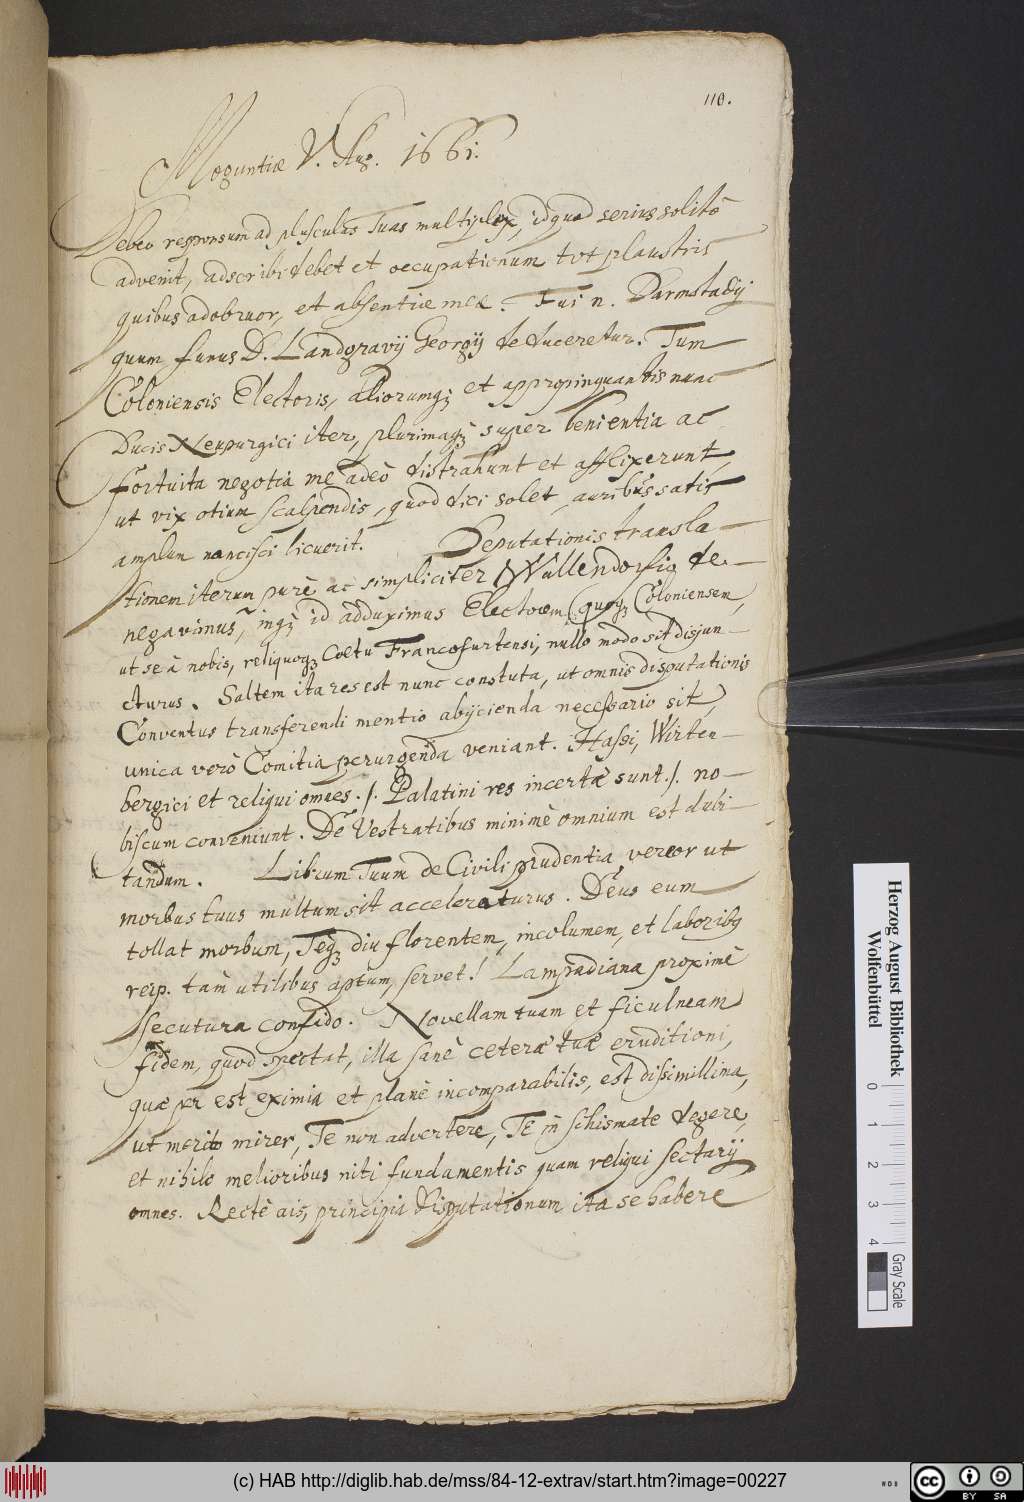 110.
Moguntiæ V. Aug. 1661.
Debeo responsum ad plusculas Tuas multiplex, idquod serius solitò
advenit, adscribi debet et occupationum tot plaustris
quibus adobruor, et absentiæ meæ. Fui n. Darmstadij
quum funus D. Landgravij Georgij deduceretur. Tum
Coloniensis Electoris, aliorumq; et appropinquantis nunc
Ducis Neupurgici iter, plurimaq; super venientia ac
fortuita negotia me adeò distrahunt et afflixerunt,
ut vix otium scalpendis, quod dici solet, auribus satis
amplum nancisci licuerit. Deputationis transla-
tionem iterum purè ac simpliciter Wullendorfio de-
negavimus, inq; id adduximus Electorem quoq; Coloniensem,
ut se à nobis, reliquoq; Coetu Francofurtensi, nullo modo sit disjun-
cturus. Saltem ita res est nunc constuta, ut omnis disputationis
Conventus transferendi mentio abijcienda necessario sit,
unica verò Comitia perurgenda veniant. Hassi, Wirten-
bergici et reliqui omnes ./. Palatini res incertæ sunt ./. no-
biscum conveniunt. De Vestratibus minimè omnium est dubi-
tandum. Librum Tuum de Civili prudentia vereor ut
morbus tuus multum sit acceleraturus. Deus eum
tollat morbum, Teq; diu florentem, incolumem, et laboribq
reip. tam utilibus aptum, servet! Lampadiana proximè
secutura confido. Novellam tuam et ficulneam
fidem, quod spectat, illa sanè ceteræ tuæ eruditioni,
quæ pr est eximia et planè incomparabilis, est dissimillima,
ut merito mirer, Te non advertere, Te in schismate degere,
et nihilo melioribus niti fundamentis quam reliqui sectarij
omnes. Rectè ais, principia disputationum ita se habere
Herzog August Bibliothek
Wolfenbüttel
0 1 2 3 4
Gray Scale
(c) HAB http://diglib.hab.de/mss/84-12-extrav/start.htm?image=00227
cc BY SA